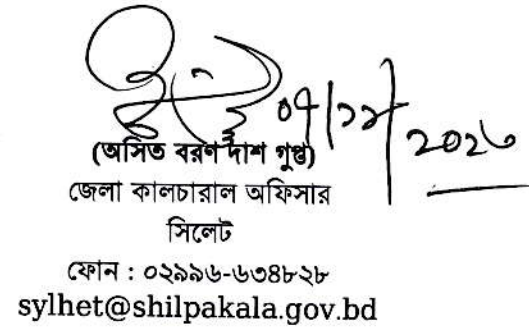 ০৭/১২/২০২৩
(অসিত বরণ দাশ গুপ্ত)
জেলা কালচারাল অফিসার
সিলেট
ফোন : ০২৯৯৬-৬৩৪৮২৮
sylhet@shilpakala.gov.bd